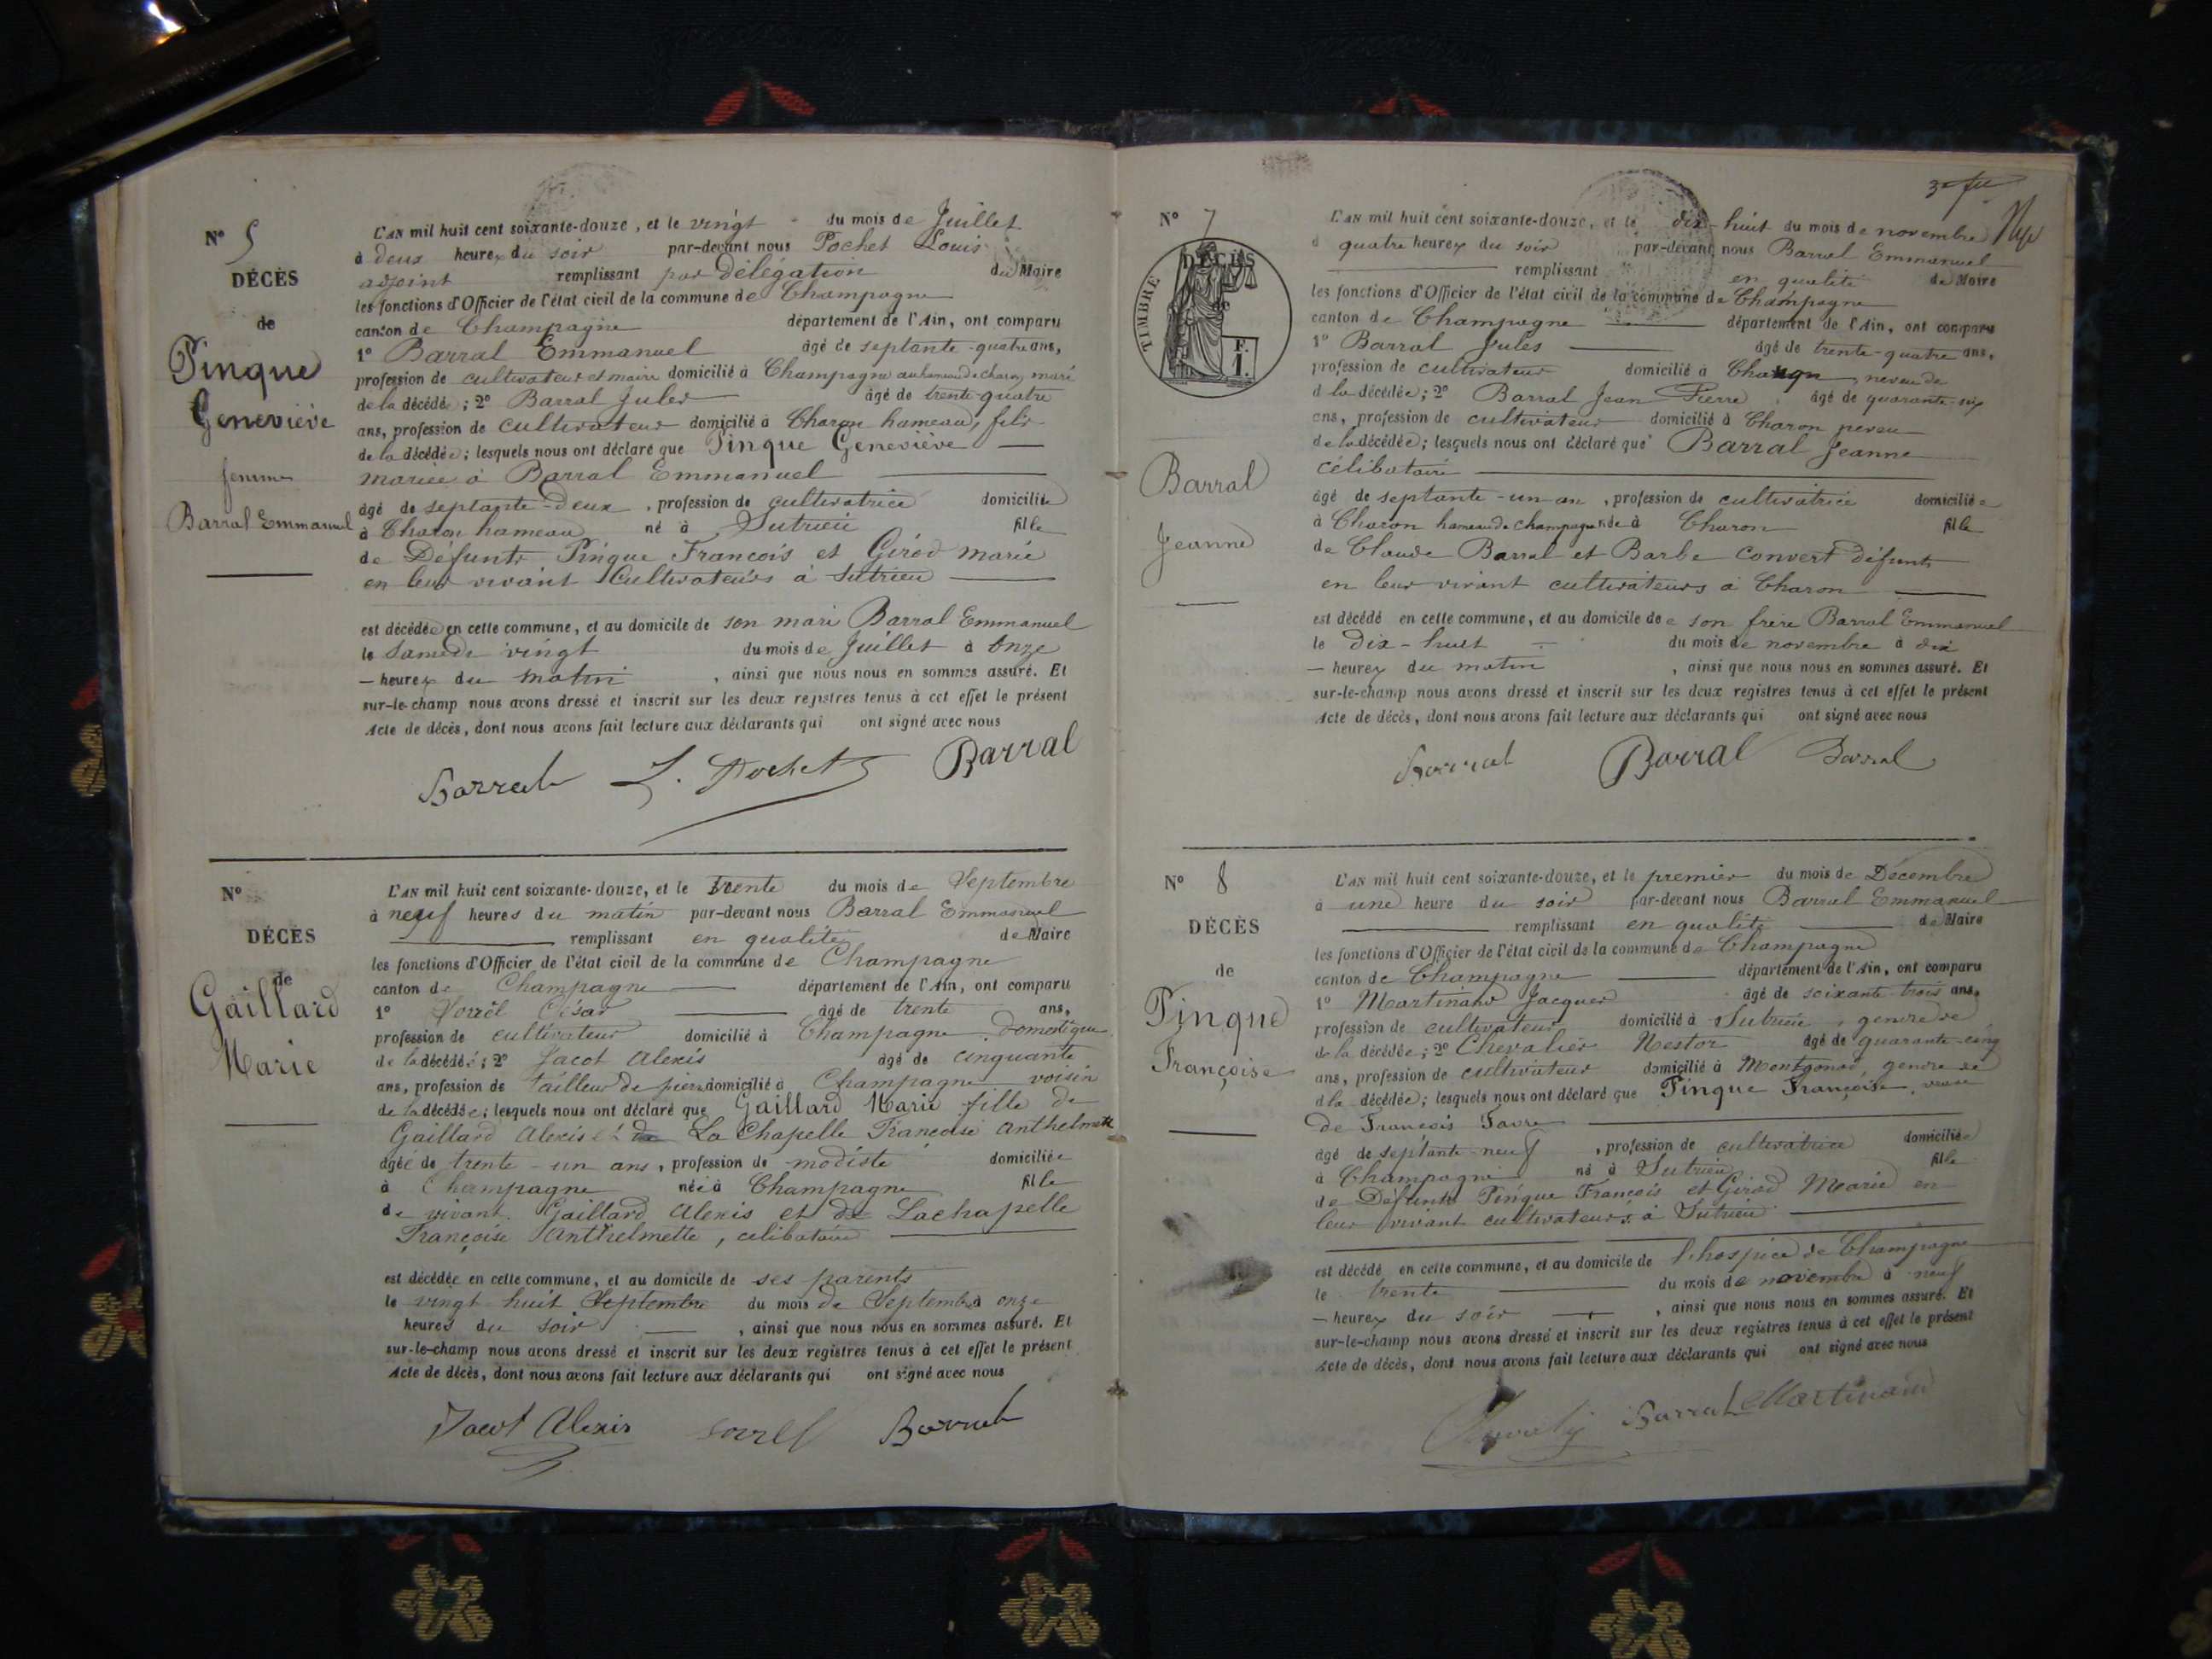 Nº 5
DÉCÈS
de
Pinque
Geneviève
femme
Barral Emmanuel
L'AN mil huit cent soixante-douze, et le vingt du mois de Juillet
à deux heures du soir par-devant nous Pochet Louis
adjoint remplissant par délégation du Maire
les fonctions d'Officier de l'état civil de la commune de Champagne
canton de Champagne département de l'Ain, ont comparu
1º Barral Emmanuel âgé de septante-quatre ans,
profession de cultivateur et maire domicilié à Champagne au hameau de charon, mari
de la décédée; 2º Barral Jules âgé de trente-quatre
ans, profession de cultivateur domicilié à Charon hameau, fils
de la décédée; lesquels nous ont déclaré que Pinque Geneviève
mariée à Barral Emmanuel
âgé de septante-deux, profession de cultivatrice domiciliée
à Charon hameau né à Sutrieu fille
de Défunts Pinque François et Girod marie
en leur vivant Cultivateurs à Sutrieu
est décédée en cette commune, et au domicile de son mari Barral Emmanuel
le Samedi vingt du mois de Juillet à Onze
heures du matin, ainsi que nous nous en sommes assuré. Et
sur-le-champ nous avons dressé et inscrit sur les deux registres tenus à cet effet le présent
Acte de décès, dont nous avons fait lecture aux déclarants qui ont signé avec nous
Barral L. Pochet Barral
Nº
DÉCÈS
de
Gaillard
Marie
L'AN mil huit cent soixante-douze, et le Trente du mois de Septembre
à neuf heures du matin par-devant nous Barral Emmanuel
remplissant en qualité de Maire
les fonctions d'Officier de l'état civil de la commune de Champagne
canton de Champagne département de l'Ain, ont comparu
1º César âgé de trente ans,
profession de cultivateur domicilié à Champagne domestique
de la décédée; 2º Jacot Alexis âgé de cinquante
ans, profession de tailleur de pierre domicilié à Champagne voisin
de la décédée; lesquels nous ont déclaré que Gaillard Marie fille de
Gaillard Alexis et de La Chapelle Françoise Anthelmette
âgée de trente-un ans, profession de modiste domiciliée
à Champagne née à Champagne fille
de vivant Gaillard Alexis et de Lachapelle
Françoise Anthelmette, célibataire
est décédée en cette commune, et au domicile de ses parents
le vingt huit Septembre du mois de Septembre à onze
heures du soir, ainsi que nous nous en sommes assuré. Et
sur-le-champ nous avons dressé et inscrit sur les deux registres tenus à cet effet le présent
Acte de décès, dont nous avons fait lecture aux déclarants qui ont signé avec nous
Jacot Alexis Barral
Nº 7
DÉCÈS
de
TIMBRE
F.
1.
Barral
Jeanne
L'AN mil huit cent soixante-douze, et le dix-huit du mois de novembre
à quatre heures du soir par-devant nous Barral Emmanuel
remplissant en qualité de Maire
les fonctions d'Officier de l'état civil de la commune de Champagne
canton de Champagne département de l'Ain, ont comparu
1º Barral Jules âgé de trente-quatre ans,
profession de cultivateur domicilié à neveu de
d la décédée; 2º Barral Jean Pierre âgé de quarante-six
ans, profession de cultivateur domicilié à Charon neveu
de la décédée; lesquels nous ont déclaré que Barral Jeanne
célibataire
âgé de septante-un an, profession de cultivatrice domiciliée
à Charon hameau de champagne née à Charon fille
de Claude Barral et Barbe Convert défunts
en leur vivant cultivateurs à Charon
est décédé en cette commune, et au domicile de son frère Barral Emmanuel
le Dix-huit du mois de novembre à dix
heures du matin, ainsi que nous nous en sommes assuré. Et
sur-le-champ nous avons dressé et inscrit sur les deux registres tenus à cet effet le présent
Acte de décès, dont nous avons fait lecture aux déclarants qui ont signé avec nous
Barral Barral Barral
Nº 8
DÉCÈS
de
Pinque
Françoise
L'AN mil huit cent soixante-douze, et le premier du mois de Décembre
à une heure du soir par-devant nous Barral Emmanuel
remplissant en qualité de Maire
les fonctions d'Officier de l'état civil de la commune de Champagne
canton de Champagne département de l'Ain, ont comparu
1º Martinand Jacques âgé de soixante-trois ans,
profession de cultivateur domicilié à Sutrieu, gendre de
de la décédée; 2º Chevalier Nestor âgé de quarante-cinq
ans, profession de cultivateur domicilié à Montgonod, gendre de
d la décédée; lesquels nous ont déclaré que Pinque Françoise, veuve
de François Favre
âgé de septante-neuf, profession de cultivatrice domiciliée
à Champagne né à Sutrieu fille
de Défunts Pinque François et Girod Marie en
leur vivant cultivateurs à Sutrieu
est décédé en cette commune, et au domicile de l'hospice de Champagne
le trente du mois de novembre à neuf
heures du soir, ainsi que nous nous en sommes assuré. Et
sur-le-champ nous avons dressé et inscrit sur les deux registres tenus à cet effet le présent
Acte de décès, dont nous avons fait lecture aux déclarants qui ont signé avec nous
Barral Martinand